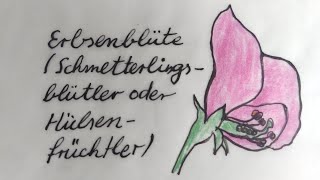 Erbsenblüte
(Schmetterlings-
blütler oder
Hülsen-
früchtler)